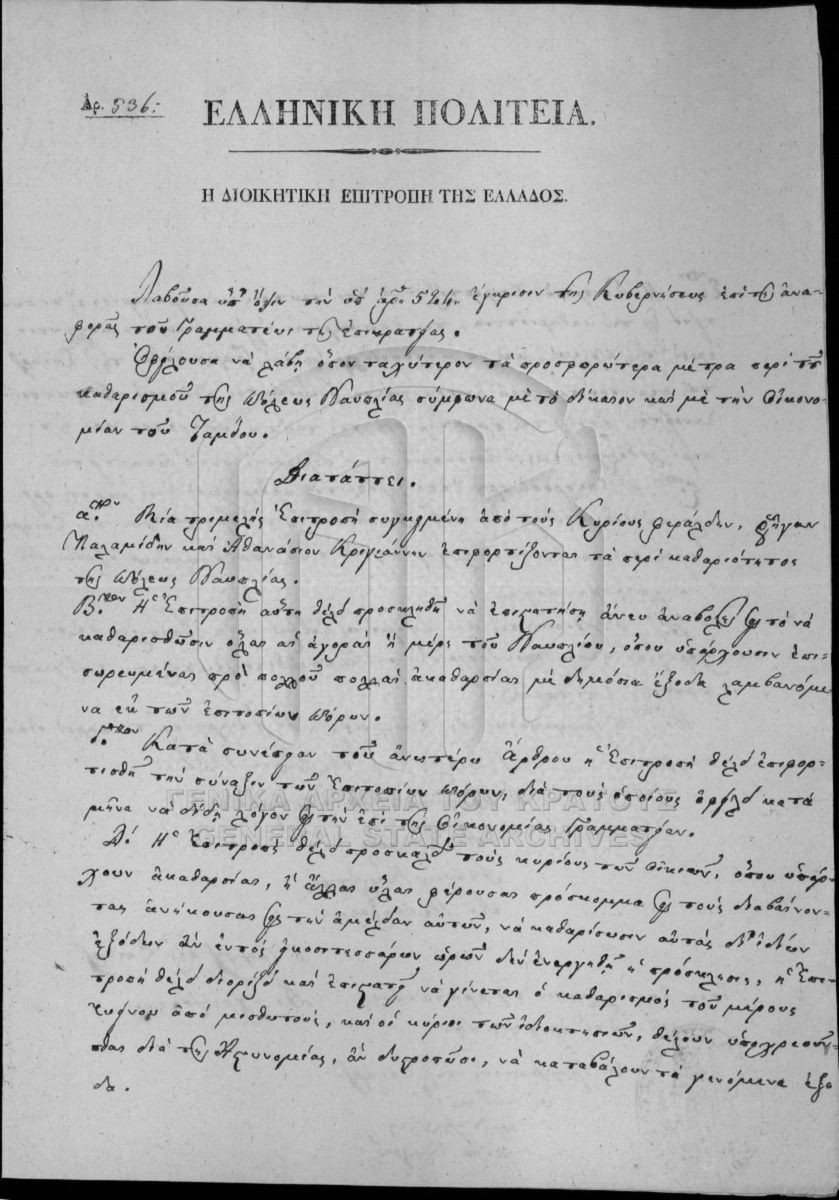 Ἀρ. 536:
ΕΛΛΗΝΙΚΗ ΠΟΛΙΤΕΙΑ.
Η ΔΙΟΙΚΗΤΙΚΗ ΕΠΙΤΡΟΠΗ ΤΗΣ ΕΛΛΑΔΟΣ.
Λαβοῦσα ὑπ' ὄψιν τὴν ὑπ' ἀρ. 5204 ἔγκρισιν τῆς Κυβερνήσεως ἐπὶ τῆς ἀνα-
φορᾶς τοῦ Γραμματέως τῆς ἐπικρατείας.
Ὀφείλουσα νὰ λάβῃ ὅσον ταχύτερον τὰ προσφορώτερα μέτρα περὶ τοῦ
καθαρισμοῦ τῆς πόλεως Ναυπλίας σύμφωνα μὲ τὸ δίκαιον καὶ μὲ τὴν οἰκονο-
μίαν τοῦ Ταμείου.
Διατάττει.
αον Μία τριμελὴς Ἐπιτροπὴ συγκειμένη ἀπὸ τοὺς Κυρίους
Καλαμίδην καὶ Ἀθανάσιον ἐπιφορτίζονται τὰ περὶ καθαριότητος
τῆς πόλεως Ναυπλίας.
Βον Ἡ Ἐπιτροπὴ αὕτη θέλει προσκληθῆ νὰ ἐπιστατήσῃ ἄνευ ἀναβολῆς εἰς τὸ νὰ
καθαρισθῶσιν ὅλαι αἱ ἀγοραὶ ἢ μέρη τοῦ Ναυπλίου, ὅπου ὑπάρχουσιν ἐπι-
σωρευμέναι πρὸ πολλοῦ πολλαὶ ἀκαθαρσίαι μὲ δημόσια ἔξοδα λαμβανόμε
να ἐκ τῶν ἐπιτοπίων πόρων.
Γον Κατὰ συνέπειαν τοῦ ἀνωτέρω ἄρθρου ἡ Ἐπιτροπὴ θέλει ἐπιφορ-
τισθῆ τὴν σύναξιν τῶν ἐπιτοπίων πόρων, διὰ τοὺς ὁποίους ὀφείλει κατὰ
μῆνα νὰ δίδῃ λόγον εἰς τὴν ἐπὶ τῆς Οἰκονομίας Γραμματείαν.
Δ. Ἡ Ἐπιτροπὴ θέλει προσκαλεῖ τοὺς κυρίους τῶν οἰκιῶν, ὅπου ὑπάρ-
χουν ἀκαθαρσίαι, ἢ ἄλλαι ὗλαι φέρουσαι πρόσκομμα εἰς τοὺς διαβαίνον-
τας ἀνήκουσαι εἰς τὴν ἀμέλειαν αὐτῶν, νὰ καθαρίσωσιν αὐτὰς δι' ἰδίων
ἐξόδων ἂν ἐντὸς εἰκοσιτεσσάρων ὡρῶν δὲν ἐνεργηθῆ ἡ πρόσκλησις, ἡ Ἐπι-
τροπὴ θέλει διορίζει καὶ ἐπιστατεῖ νὰ γίνεται ὁ καθαρισμὸς τοῦ μέρους
ἐκείνου ἀπὸ μισθωτούς, καὶ οἱ κύριοι τῶν ἰδιοκτησιῶν, θέλουν ὑποχρεοῦν-
ται διὰ τῆς Ἀστυνομίας, ἂν δυστροπῶσι, νὰ καταβάλουν τὰ γενόμενα ἔξο
δα.
ΓΕΝΙΚΑ ΑΡΧΕΙΑ ΤΟΥ ΚΡΑΤΟΥΣ
GENERAL STATE ARCHIVES